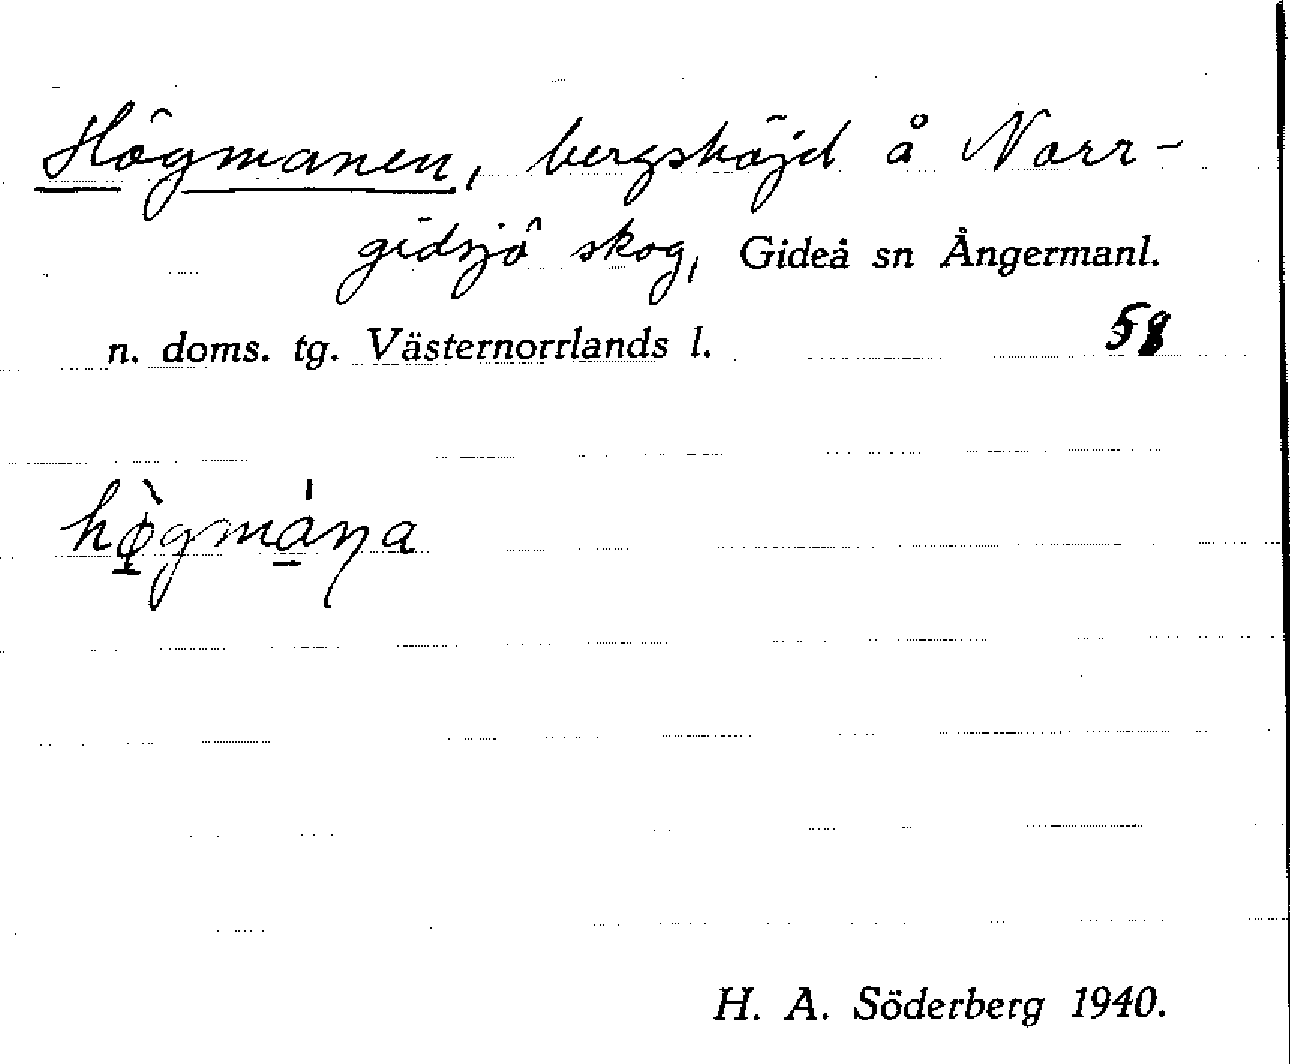 Högmanen, bergshöjd å Norr-
gidsjö skog, Gideå sn Ångermanl.
n. doms. tg. Västernorrlands l. 58
hø̀gmána
H. A. Söderberg 1940.